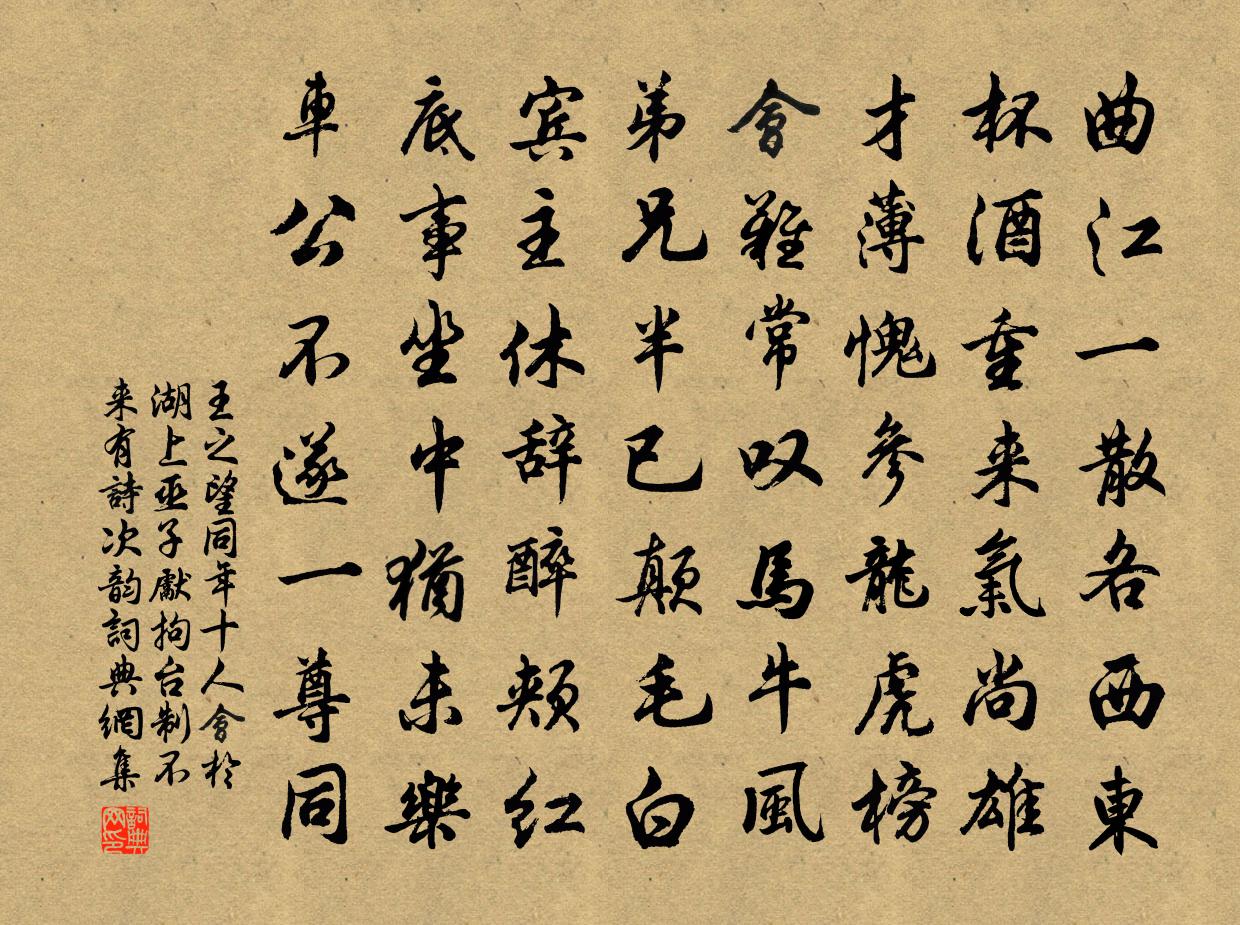 曲江一散各西東
杯酒重来氣尚雄
才薄愧参龍虎榜
會難常叹馬牛風
弟兄半已颠毛白
宾主休辞醉颊红
底事坐中猶未樂
車公不遂一尊同
王之望同年十人會於
湖上亚子獻拘台制不
来有詩次韵詞典網集
詞典網印